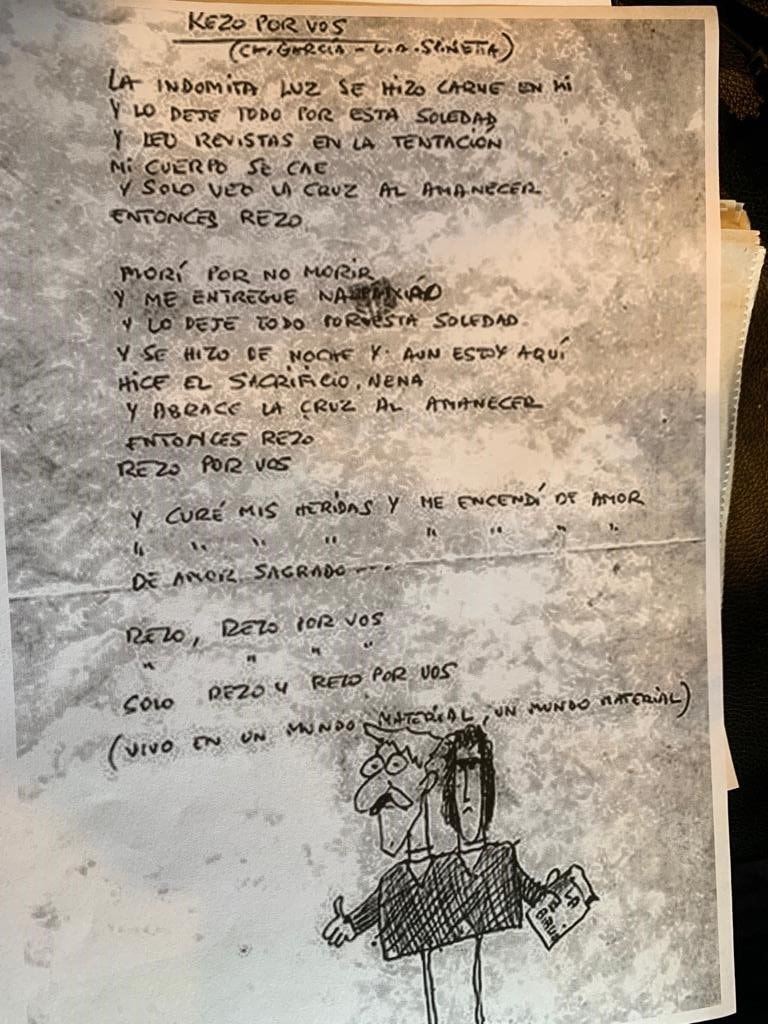 REZO POR VOS
(CH. GARCÍA - L.A. SPINETTA)
LA INDOMITA LUZ SE HIZO CARNE EN MI
Y LO DEJE TODO POR ESTA SOLEDAD
Y LEO REVISTAS EN LA TENTACIÓN
MI CUERPO SE CAE
Y SOLO VEO LA CRUZ AL AMANECER
ENTONCES REZO
MORÍ POR NO MORIR
Y ME ENTREGUE
Y LO DEJE TODO POR ESTA SOLEDAD
Y SE HIZO DE NOCHE Y AUN ESTOY AQUÍ
HICE EL SACRIFICIO, NENA
Y ABRACE LA CRUZ AL AMANECER
ENTONCES REZO
REZO POR VOS
Y CURÉ MIS HERIDAS Y ME ENCENDÍ DE AMOR
" " " " " " " "
DE AMOR SAGRADO ---
REZO, REZO POR VOS
" " " "
SOLO REZO Y REZO POR VOS
(VIVO EN UN MUNDO MATERIAL, UN MUNDO MATERIAL)
LA